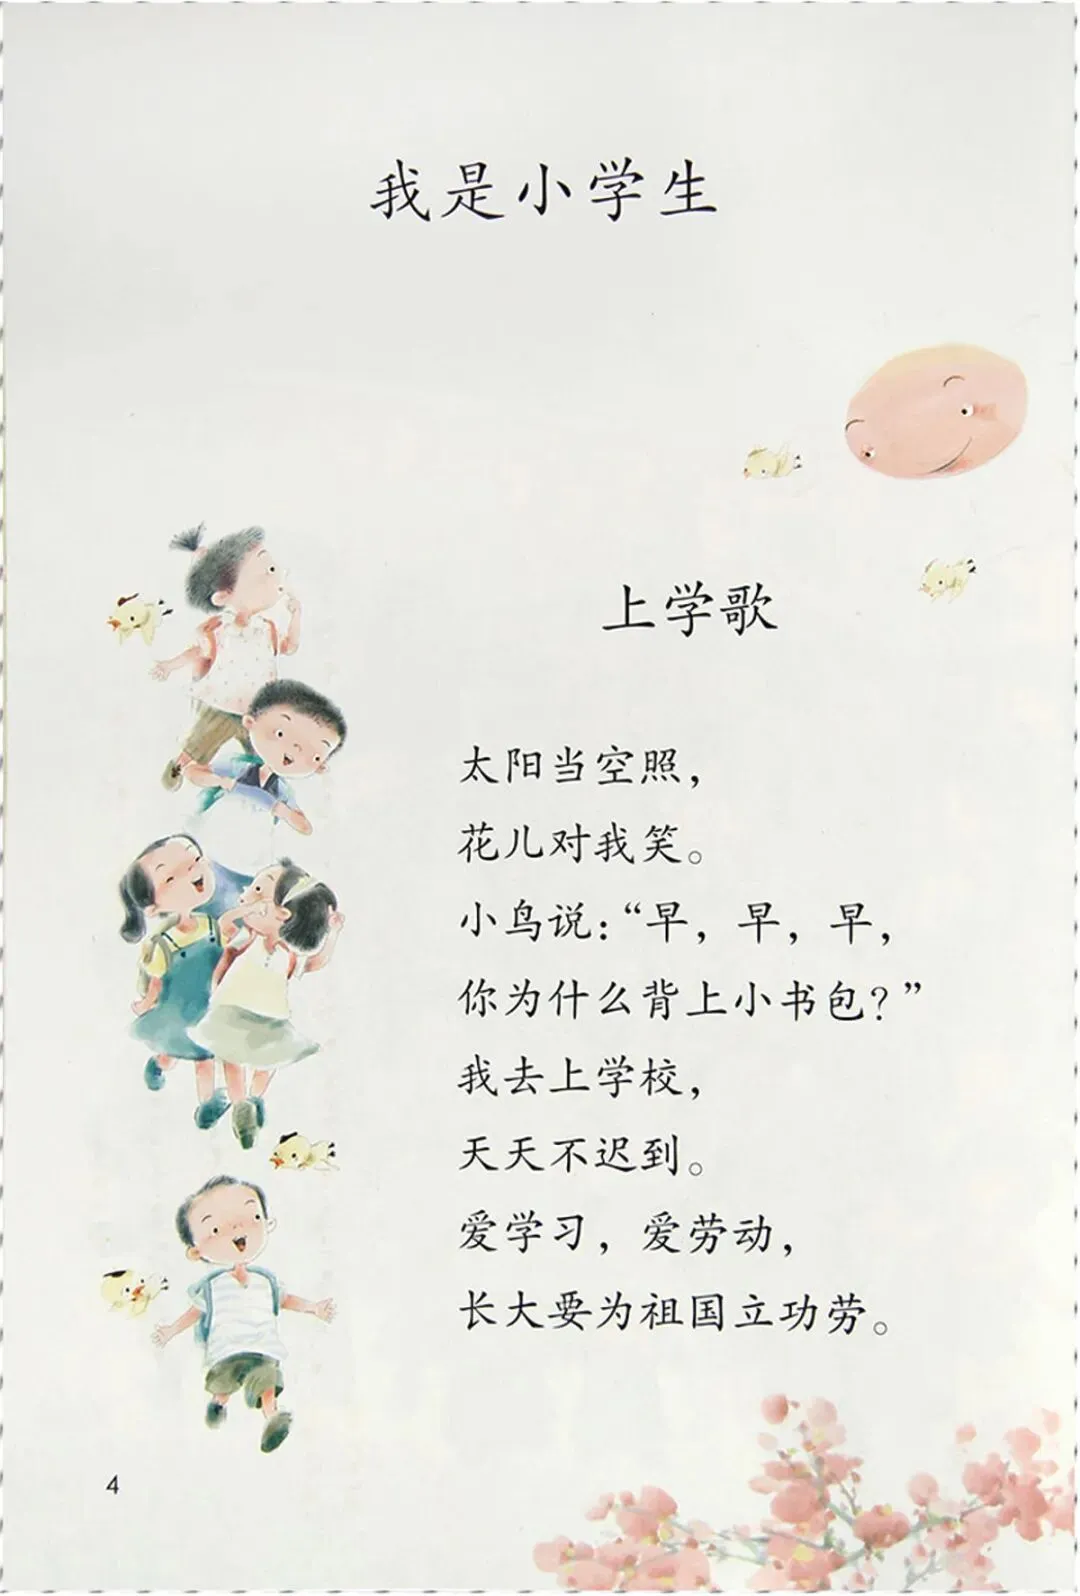 我是小学生
上学歌
太阳当空照，
花儿对我笑。
小鸟说：“早，早，早，
你为什么背上小书包？”
我去上学校，
天天不迟到。
爱学习，爱劳动，
长大要为祖国立功劳。
4